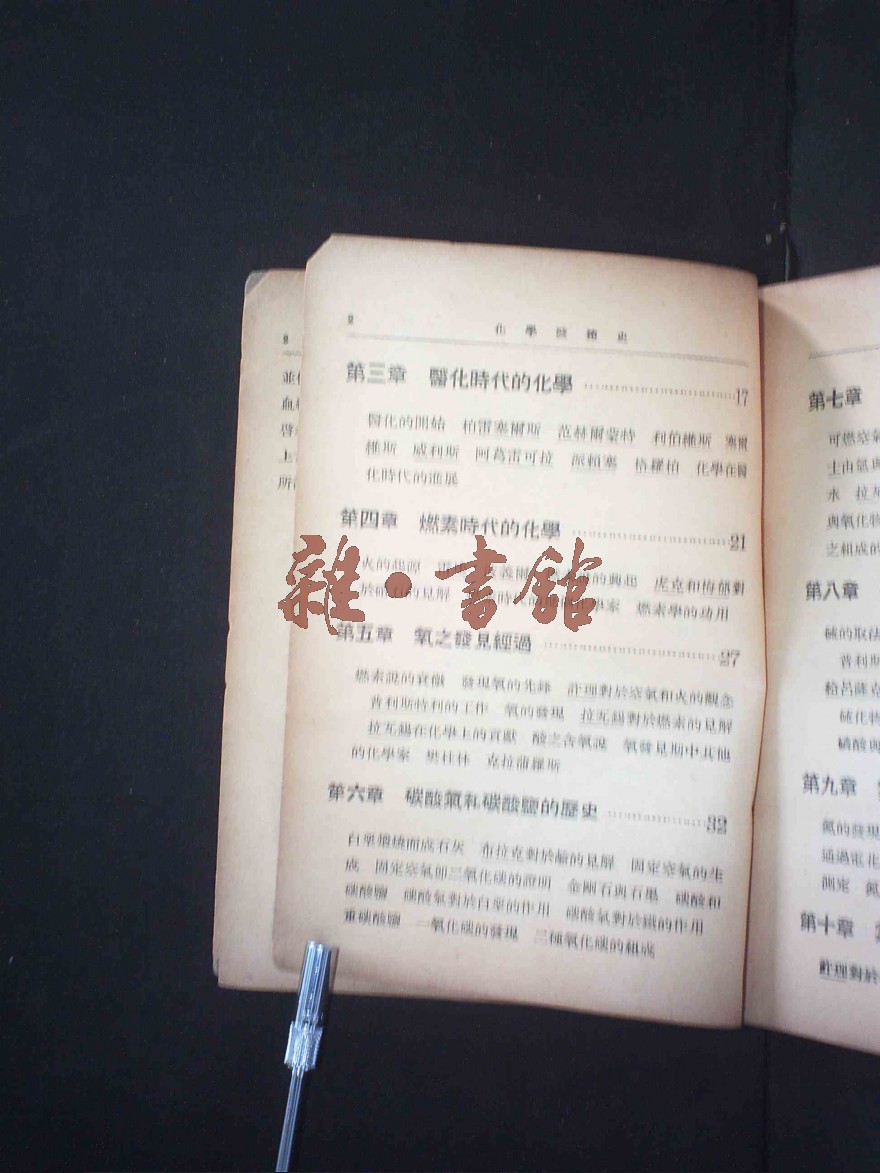 2
化學發達史
第三章 醫化時代的化學 ……17
醫化的開始 柏雷塞爾斯 范赫爾蒙特 利伯維斯 塞爾
維斯 威利斯 阿葛雷可拉 派賴塞 格羅柏 化學在醫
化時代的進展
第四章 燃素時代的化學 ……21
火的起源 的興起 虎克和梅郁對
於 的見解 燃素學的功用
第五章 氧之發見經過 ……27
燃素說的衰微 發現氧的先鋒 許理對於空氣和火的觀念
普利斯特利的工作 氧的發現 拉互錫對於燃素的見解
拉互錫在化學上的貢獻 酸之含氧說 氧發見期中其他
的化學家 樊桂林 克拉蒲羅斯
第六章 碳酸氣和碳酸鹽的歷史 ……32
白堊煅燒而成石灰 布拉克對於鹼的見解 固定空氣的生
成 固定空氣卽二氧化碳的證明 金剛石與石墨 碳酸和
碳酸鹽 碳酸氣對於白堊的作用 碳酸氣對於鐵的作用
重碳酸鹽 一氧化碳的發現 二種氧化碳的組成
雜·書館
第七章
可燃空氣
士由氫與
水 拉互
與氧化物
之組成的
第八章
硫的取法
普利斯
給呂薩克
硫化物
磺酸與
第九章
氮的發現
通過電花
測定 氮
第十章
許理對於